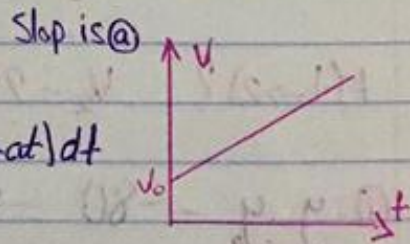 Slop is ⓐ
V
at) dt
V₀
t